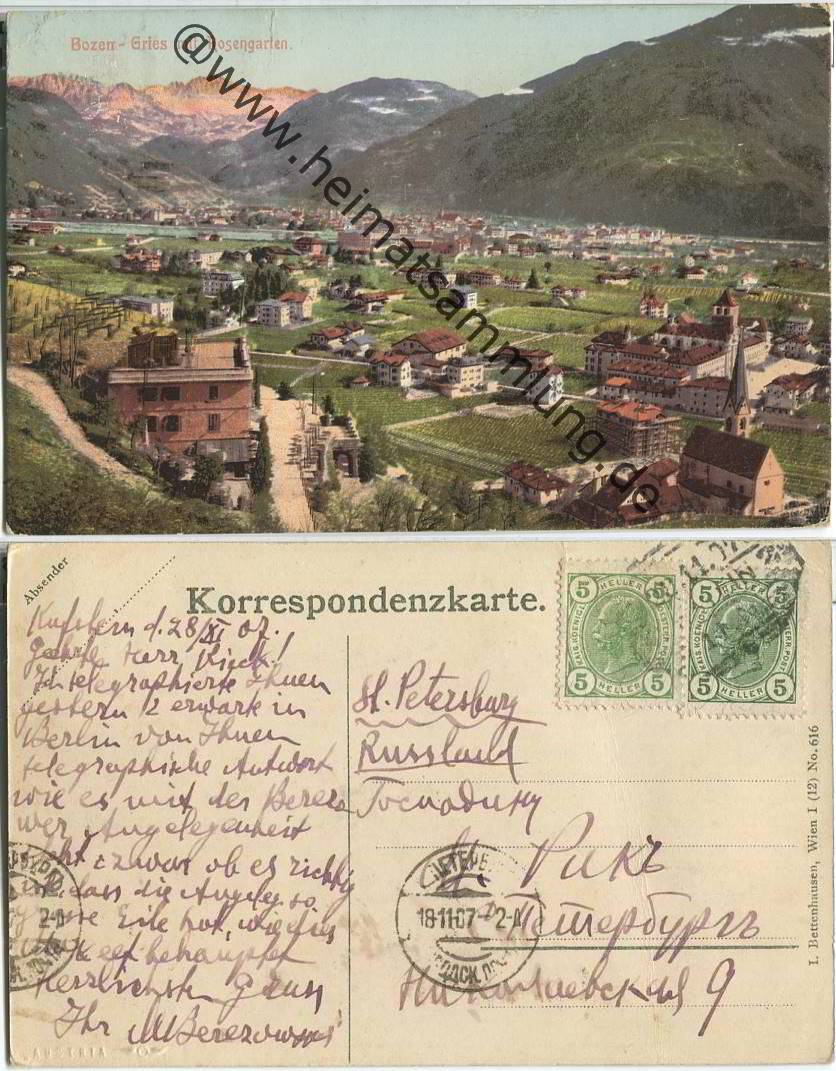 Bozen - Gries mit Rosengarten.
@www.heimatsammlung.de
Absender
Korrespondenzkarte.
5 HELLER 5
5 HELLER 5
Kufstein d. 28/XI 07.
Geehrter Herr Rieck!
Ich telegraphierte Ihnen
gestern u erwarte in
Berlin von Ihnen
telegraphische Antwort
wie es mit der Berezo
wer Angelegenheit
zwar ob es richtig
ist, dass die Angeleg. so
grosse Eile hat, wie dies
behauptet
Herzlichsten Gruss
Ihr MBerezowski
St. Petersburg
Russland
Господину
Рикъ
Петербургъ
Николаевская 9
18·11·07 2-Д
2-Д
I. Bettenhausen, Wien I (12) No. 616
AUSTRIA